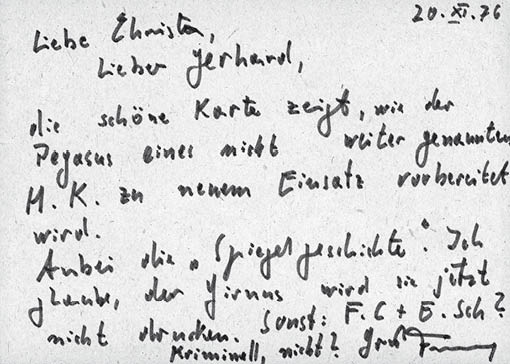 20. XI. 76
Liebe Christa,
Lieber Gerhard,
die schöne Karte zeigt, wie der
Pegasus eines nicht weiter genannten
H. K. zu neuem Einsatz vorbereitet
wird.
Anbei die „Spiegelgeschichte“. Ich
glaube, der Girnus wird sie jetzt
nicht drucken. Sonst: F. C + E. Sch?
Kriminell, nicht? Gruß